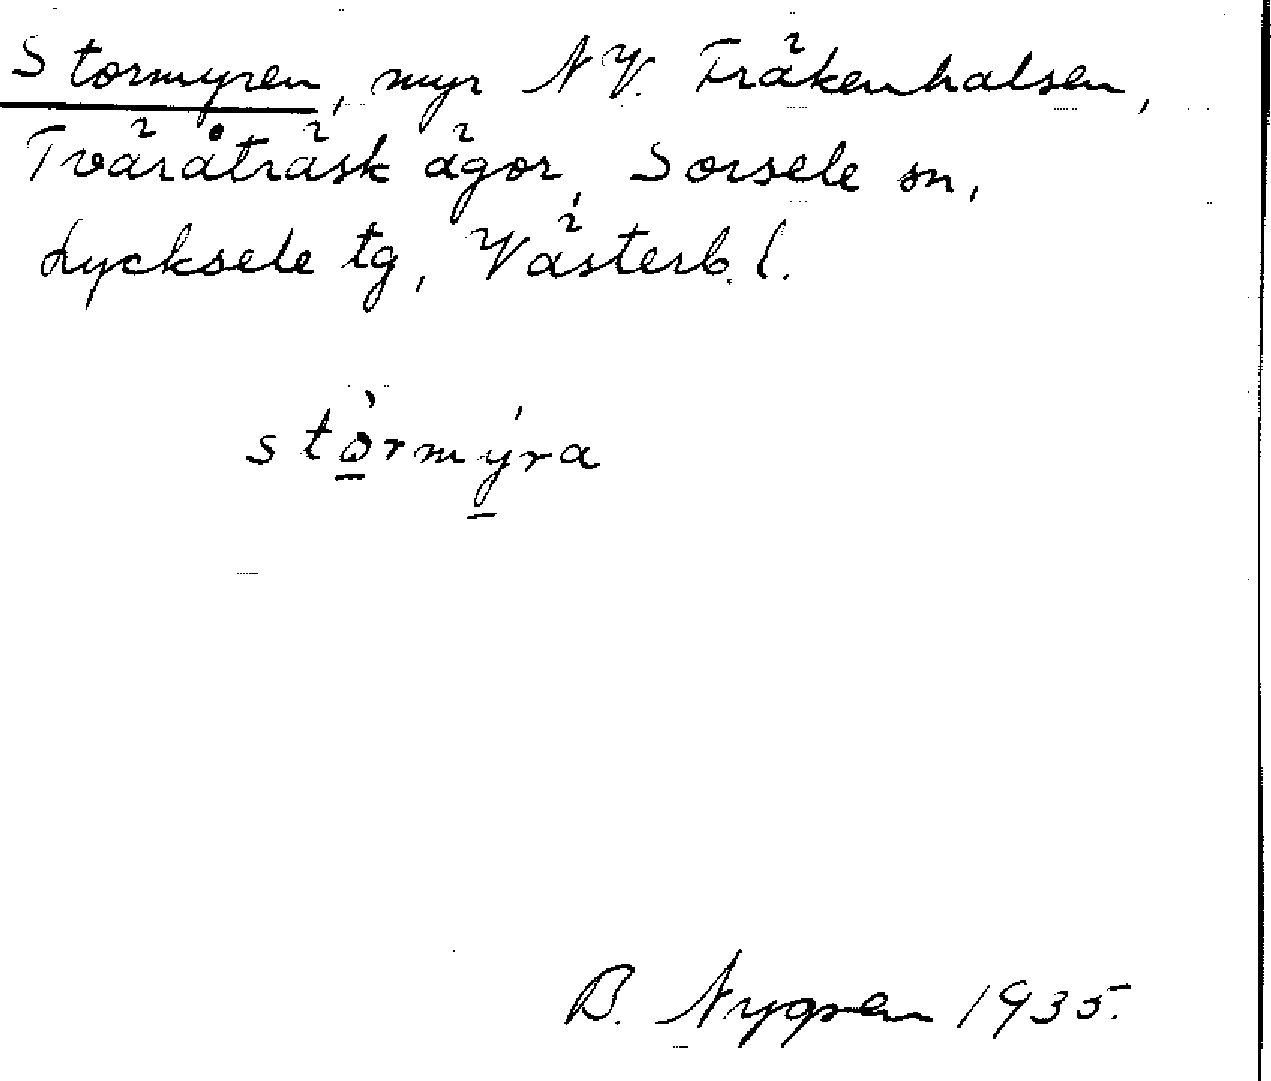 Stormyren, myr NV. Fräkenhalsen,
Tväråträsk ägor, Sorsele sn,
Lycksele tg, Västerb. l.
stòrmýra
B. Nygren 1935.